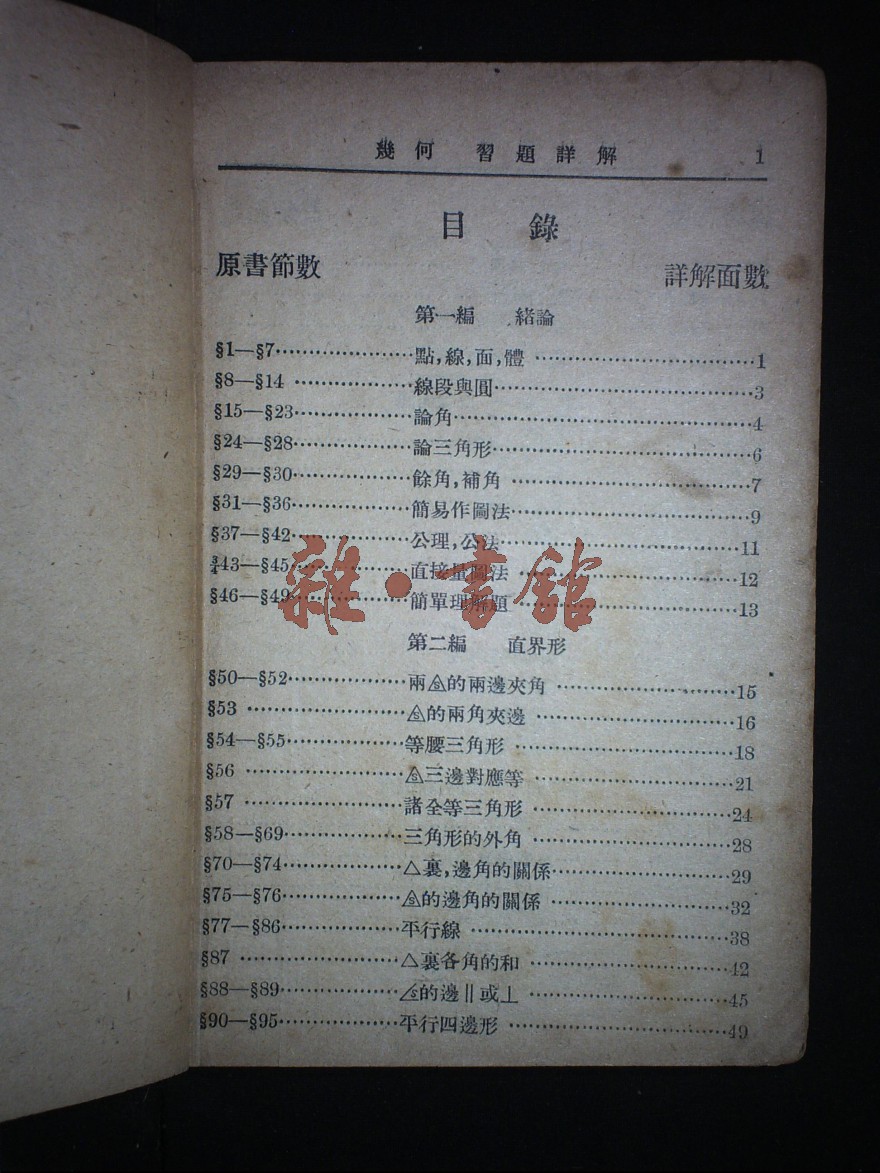 幾何 習題詳解 1
目錄
原書節數 詳解面數
第一編 緒論
§1—§7……………………點,線,面,體……………………1
§8—§14……………………線段與圓……………………3
§15—§23……………………論角……………………4
§24—§28……………………論三角形……………………6
§29—§30……………………餘角,補角……………………7
§31—§36……………………簡易作圖法……………………9
§37—§42……………………公理,公法……………………11
43—§45……………………直接量圖法……………………12
§46—§49……………………簡單理解題……………………13
雜·書館
第二編 直界形
§50—§52……………………兩△s的兩邊夾角……………………15
§53……………………△s的兩角夾邊……………………16
§54—§55……………………等腰三角形……………………18
§56……………………△s三邊對應等……………………21
§57……………………諸全等三角形……………………24
§58—§69……………………三角形的外角……………………28
§70—§74……………………△裏,邊角的關係……………………29
§75—§76……………………△s的邊角的關係……………………32
§77—§86……………………平行線……………………38
§87……………………△裏各角的和……………………42
§88—§89……………………∠s的邊∥或⊥……………………45
§90—§95……………………平行四邊形……………………49